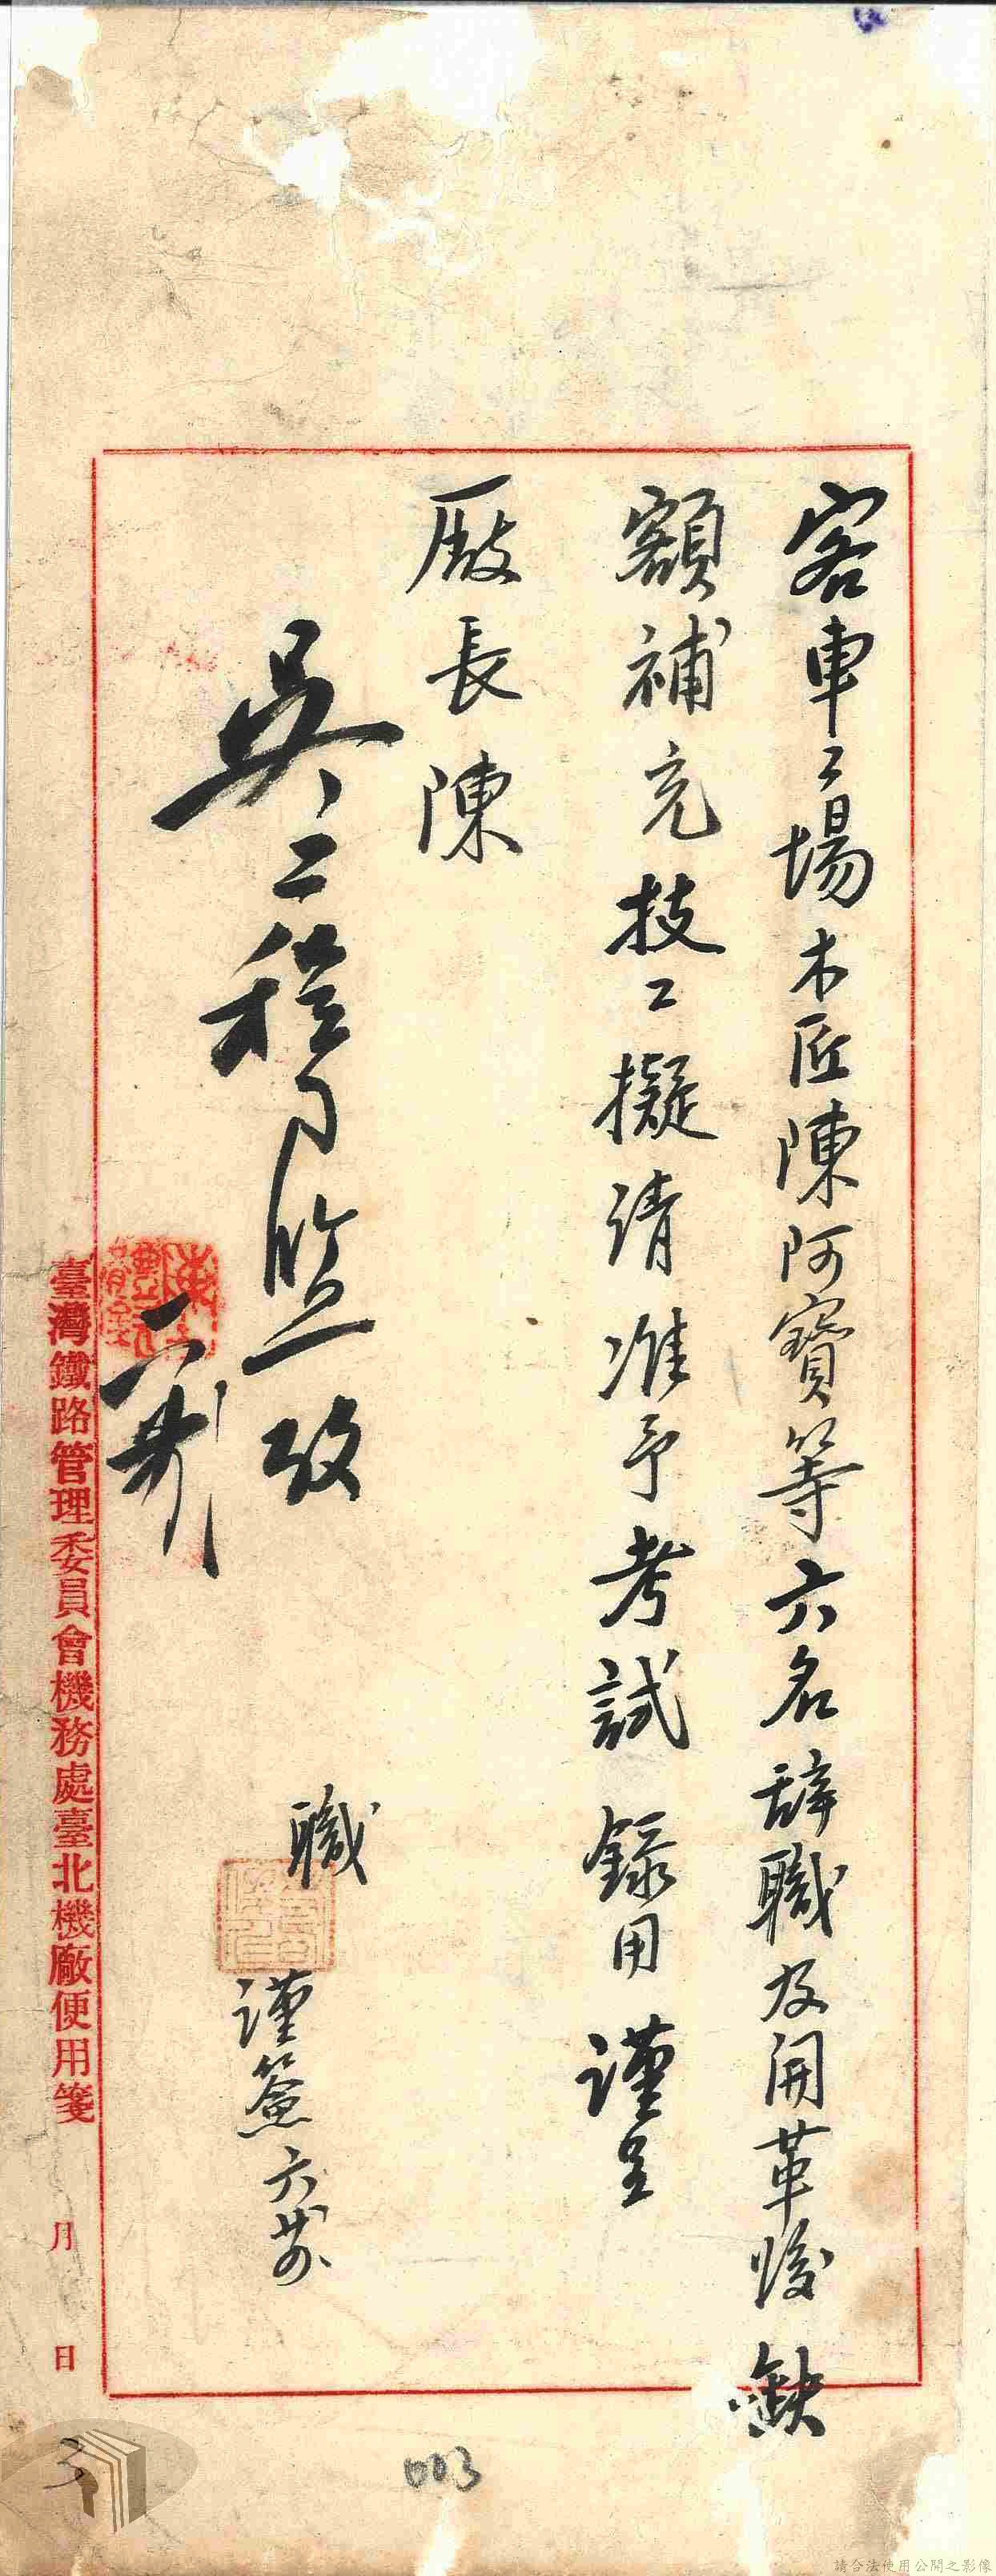 客車工場木匠陳阿寶等六名辞職及開革後缺
額補充技工擬请准予考試錄用謹呈
厰長陳
吳工程司監攷
職
謹簽六廿
臺灣鐵路管理委員會機務處臺北機廠便用箋 月 日
3
003
請合法使用公開之影像